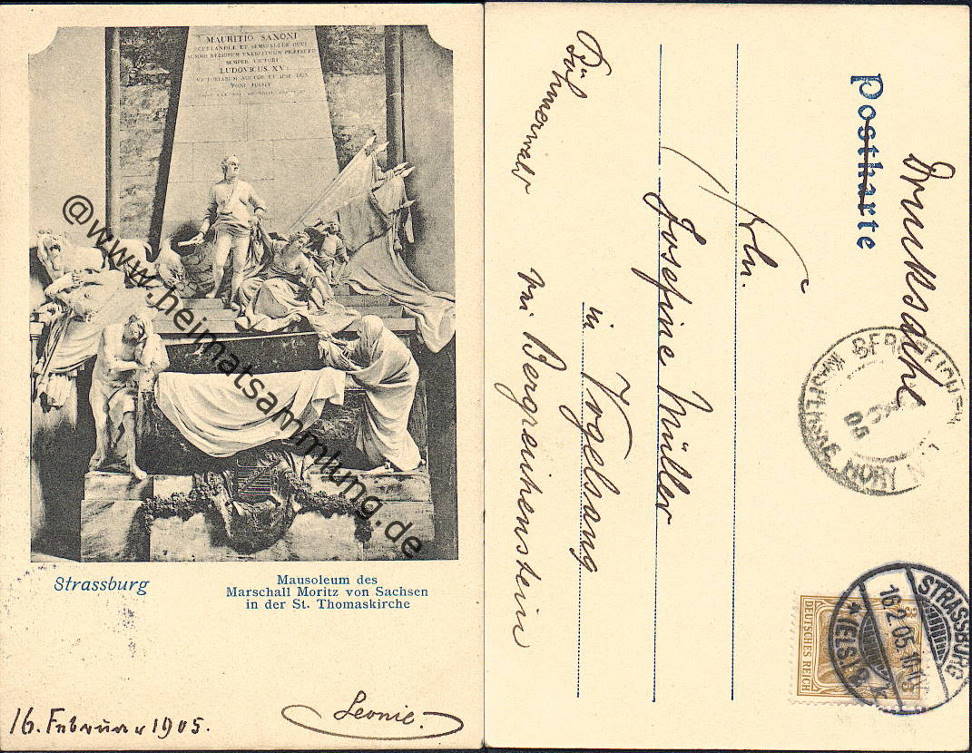 MAURITIO SAXONI
LUDOVICUS XV
@www.heimatsammlung.de
Strassburg
Mausoleum des
Marschall Moritz von Sachsen
in der St. Thomaskirche
16. Februar 1905.
Leonie.
Postkarte
Drucksache
Frln.
Josefine Müller
in Vogelsang
bei Bergreichenstein
Böhmerwald
BERGREICHENSTEIN
KAŠPERSKÉ HORY
05
STRASSBURG
16.2.05.
(ELS.)
DEUTSCHES REICH
3